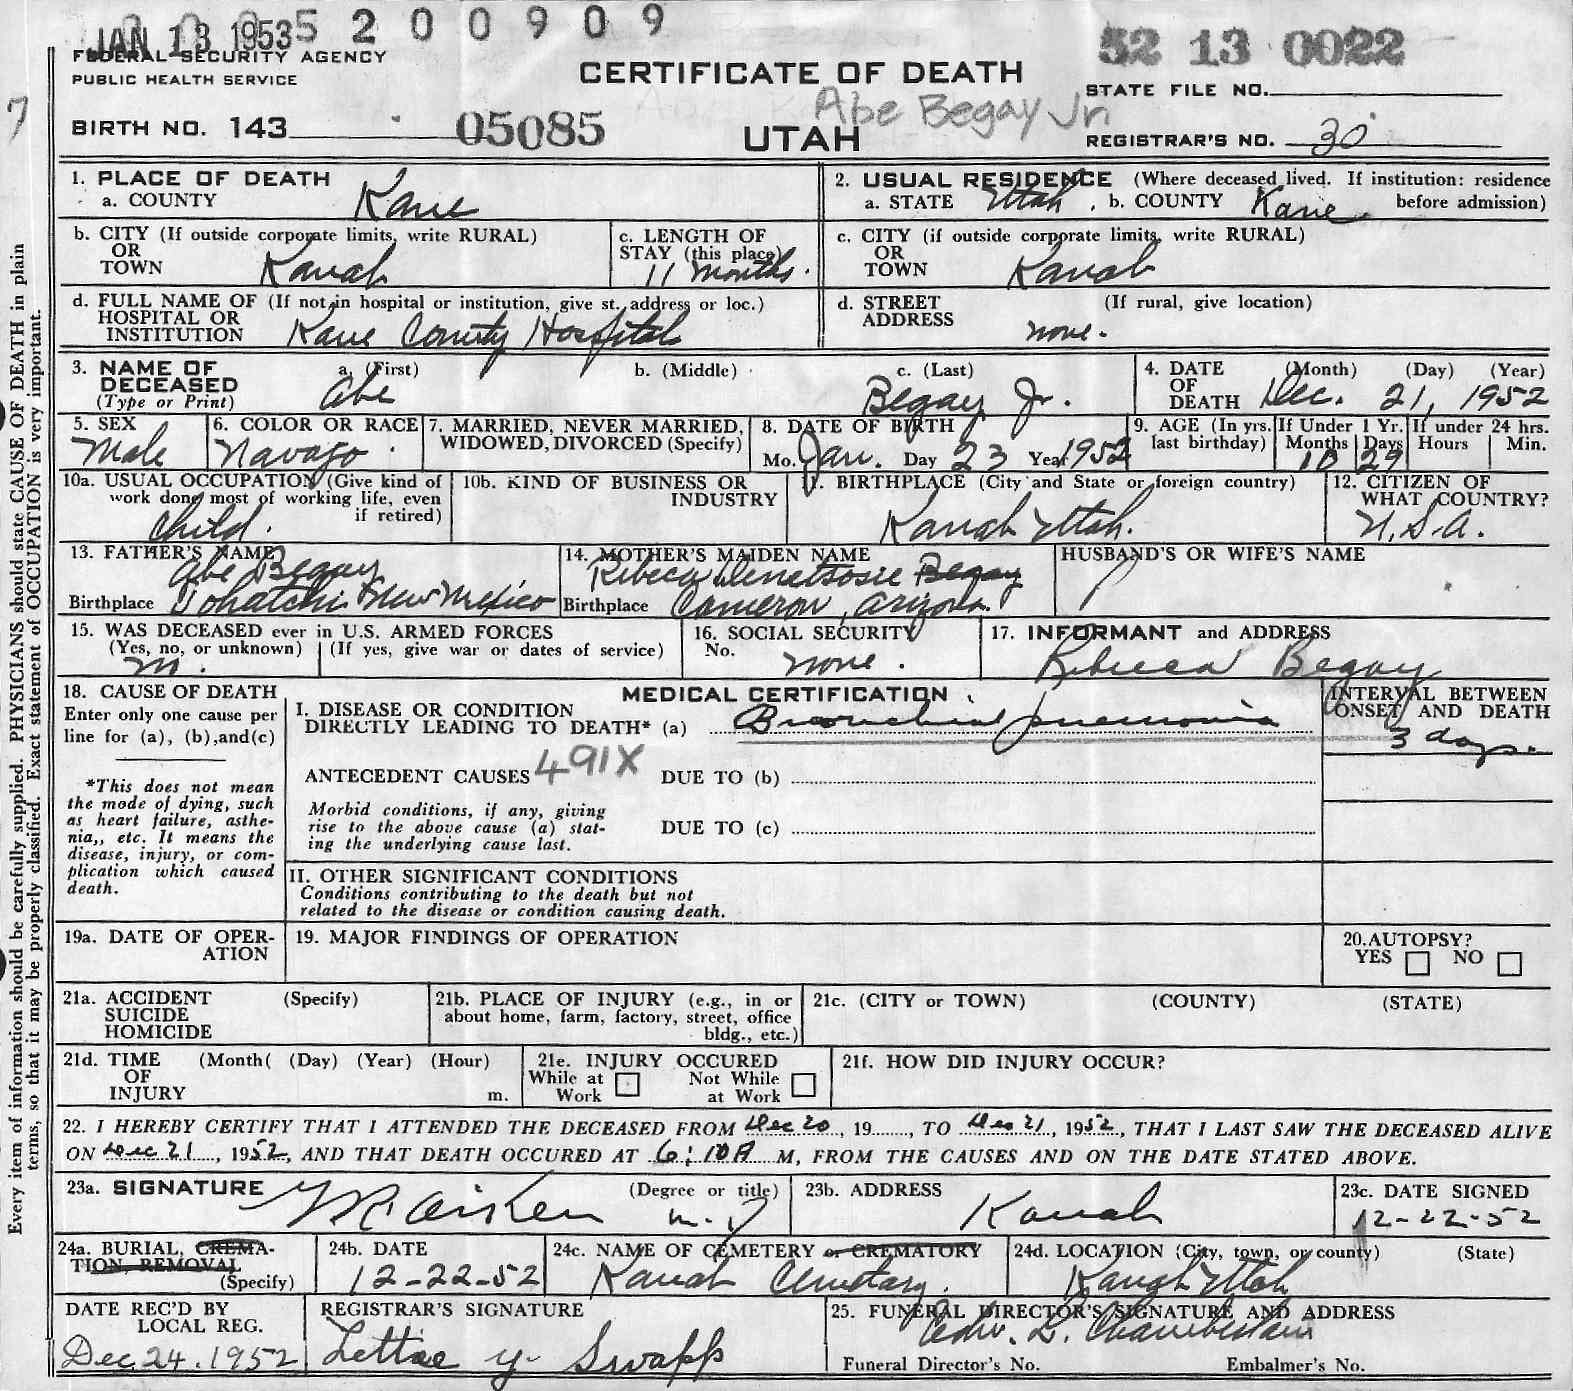 JAN 13 1953 5 2 0 0 9 0 9
52 13 0022
FEDERAL SECURITY AGENCY
PUBLIC HEALTH SERVICE
CERTIFICATE OF DEATH
STATE FILE NO.
Abe Begay Jr.
7
BIRTH NO. 143 05085
UTAH
REGISTRAR'S NO. 30
Every item of information should be carefully supplied. PHYSICIANS should state CAUSE OF DEATH in plain
terms, so that it may be properly classified. Exact statement of OCCUPATION is very important.
1. PLACE OF DEATH
a. COUNTY Kane
2. USUAL RESIDENCE (Where deceased lived. If institution: residence
a. STATE Utah. b. COUNTY Kane. before admission)
b. CITY (If outside corporate limits, write RURAL)
OR
TOWN Kanab
c. LENGTH OF
STAY (this place)
11 months.
c. CITY (if outside corporate limits, write RURAL)
OR
TOWN Kanab
d. FULL NAME OF (If not in hospital or institution, give st. address or loc.)
HOSPITAL OR
INSTITUTION Kane County Hospital
d. STREET (If rural, give location)
ADDRESS none.
3. NAME OF DECEASED (Type or Print)
a. (First) b. (Middle) c. (Last)
Abe Begay Jr.
4. DATE OF DEATH (Month) (Day) (Year)
Dec. 21, 1952
5. SEX
Male
6. COLOR OR RACE
Navajo
7. MARRIED, NEVER MARRIED,
WIDOWED, DIVORCED (Specify)
8. DATE OF BIRTH
Mo. Jan. Day 23 Year 1952
9. AGE (In yrs. last birthday)
If Under 1 Yr. Months 10 Days 29
If under 24 hrs. Hours Min.
10a. USUAL OCCUPATION (Give kind of
work done most of working life, even
if retired)
Child.
10b. KIND OF BUSINESS OR
INDUSTRY
11. BIRTHPLACE (City and State or foreign country)
Kanab Utah.
12. CITIZEN OF
WHAT COUNTRY?
U.S.A.
13. FATHER'S NAME
Abe Begay
Birthplace Tohatchi New Mexico
14. MOTHER'S MAIDEN NAME
Rebeca Denetsosie Begay
Birthplace Cameron, Arizona.
HUSBAND'S OR WIFE'S NAME
15. WAS DECEASED ever in U.S. ARMED FORCES
(Yes, no, or unknown) (If yes, give war or dates of service)
16. SOCIAL SECURITY
No. none.
17. INFORMANT and ADDRESS
Rebecca Begay
18. CAUSE OF DEATH
Enter only one cause per
line for (a), (b), and (c)
*This does not mean
the mode of dying, such
as heart failure, asthe-
nia,, etc. It means the
disease, injury, or com-
plication which caused
death.
MEDICAL CERTIFICATION
I. DISEASE OR CONDITION
DIRECTLY LEADING TO DEATH* (a) Bronchial pnemonia
INTERVAL BETWEEN
ONSET AND DEATH
3 days.
ANTECEDENT CAUSES 491X DUE TO (b)
Morbid conditions, if any, giving
rise to the above cause (a) stat-
ing the underlying cause last.
DUE TO (c)
II. OTHER SIGNIFICANT CONDITIONS
Conditions contributing to the death but not
related to the disease or condition causing death.
19a. DATE OF OPER-
ATION
19. MAJOR FINDINGS OF OPERATION
20. AUTOPSY?
YES NO
21a. ACCIDENT (Specify)
SUICIDE
HOMICIDE
21b. PLACE OF INJURY (e.g., in or
about home, farm, factory, street, office
bldg., etc.)
21c. (CITY or TOWN) (COUNTY) (STATE)
21d. TIME (Month( (Day) (Year) (Hour)
OF
INJURY m.
21e. INJURY OCCURED
While at Work Not While at Work
21f. HOW DID INJURY OCCUR?
22. I HEREBY CERTIFY THAT I ATTENDED THE DECEASED FROM Dec 20, 19...., TO Dec 21, 1952, THAT I LAST SAW THE DECEASED ALIVE
ON Dec 21, 1952, AND THAT DEATH OCCURED AT 6:10A M, FROM THE CAUSES AND ON THE DATE STATED ABOVE.
23a. SIGNATURE (Degree or title)
Aiken M.D
23b. ADDRESS
Kanab
23c. DATE SIGNED
12-22-52
24a. BURIAL, CREMA-
TION, REMOVAL
(Specify)
24b. DATE
12-22-52
24c. NAME OF CEMETERY or CREMATORY
Kanab Cemetary.
24d. LOCATION (City, town, or county) (State)
Kanab Utah
DATE REC'D BY
LOCAL REG.
Dec. 24. 1952
REGISTRAR'S SIGNATURE
Lettie Y. Swapp
25. FUNERAL DIRECTOR'S SIGNATURE AND ADDRESS
Chamberlain
Funeral Director's No. Embalmer's No.